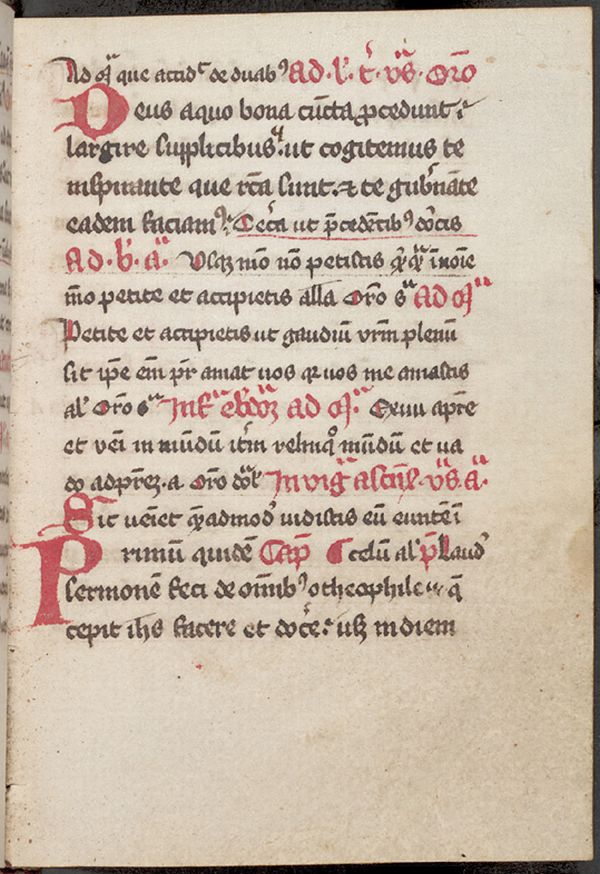 Ad mᵃ que accid᷑ de duabꝰ Ad · l' · t' · vs̄ · Oro̅
Deus a quo bona cūcta ꝓcedunt
largire supplicibus ut cogitemus te
inspirante que rc̄a sunt · ⁊ te gubn̄āte
eadem faciamꝰ · Cet'a ut p̄cedētibꝰ doc̄is
Ad · b' · aᵃ Vsqꝫ mō nō petistis q'q̄ᵃ in noīe
m̄o petite et accipietis alla Oro̅ sᵃ Ad mᵃ
Petite et accipietis ut gaudiū vrm̄ plenū
sit ip̄e em̄ pr̄ amat uos qr uos me amastis
al' Oro̅ sᵃ Ad mᵃ Exiui a pr̄e
et veī in mūdū itm̄ relinqͦ mūdū et ua
do ad pr̄eꝫ · a · Oro̅ In vigᵃ ascn̄s · vs̄ · aᵃ
Sic ueīet qēadmodꝰ uidistis eū euntē ī
Primū quidē Cap̄ celū al' p̄ Laudꝰ
sermonē feci de om̄ibꝰ o theophile q̄
cepit ihs facere et doc̄e · usqꝫ in diem